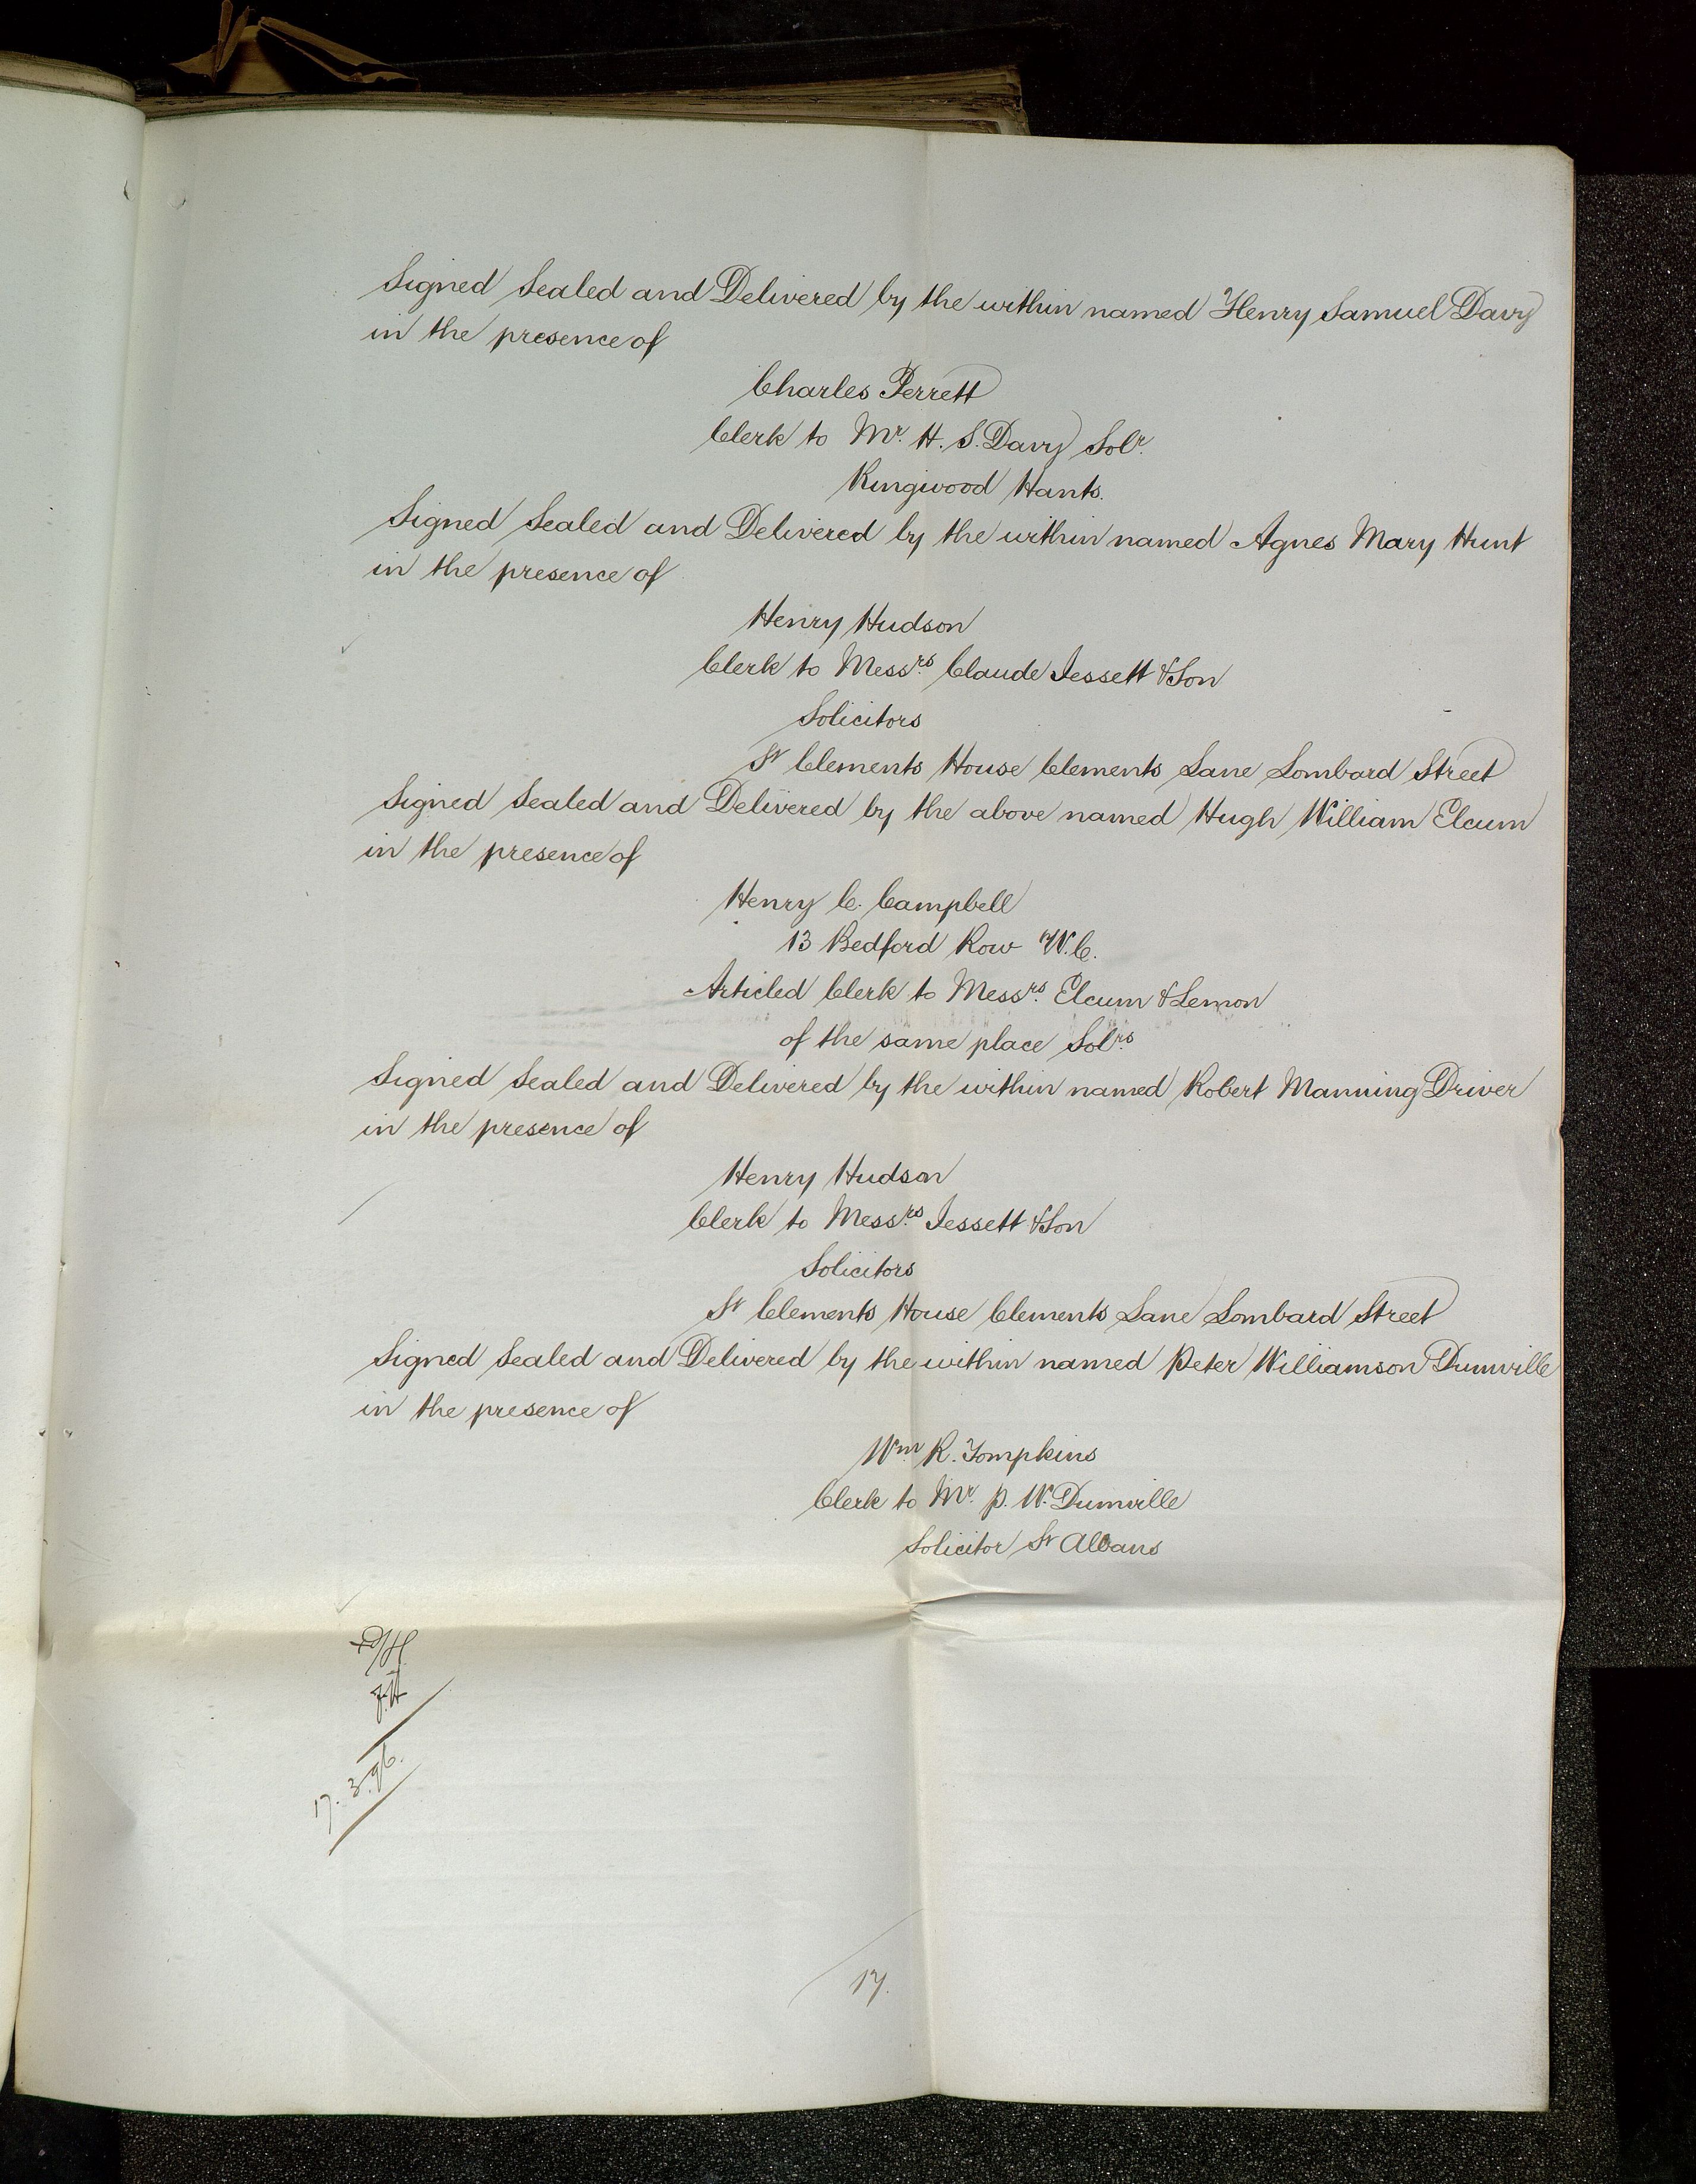 Signed Sealed and Delivered by the within named Henry Samuel Davy
in the presence of
Charles Perrett
Clerk to Mr. H. S. Davy Solr.
Ringwood Hants.
Signed Sealed and Delivered by the within named Agnes Mary Hunt
in the presence of
Henry Hudson
Clerk to Messrs. Claude Jessett & Son
Solicitors
St Clements House Clements Lane Lombard Street
Signed Sealed and Delivered by the above named Hugh William Elcum
in the presence of
Henry C. Campbell
13 Bedford Row W.C.
Articled Clerk to Messrs. Elcum & Lemon
of the same place Solrs.
Signed Sealed and Delivered by the within named Robert Manning Driver
in the presence of
Henry Hudson
Clerk to Messrs. Jessett & Son
Solicitors
St Clements House Clements Lane Lombard Street
Signed Sealed and Delivered by the within named Peter Williamson Dumville
in the presence of
Wm. R. Tompkins
Clerk to Mr. P. W. Dumville
Solicitor St Albans
17.3.96.
17.